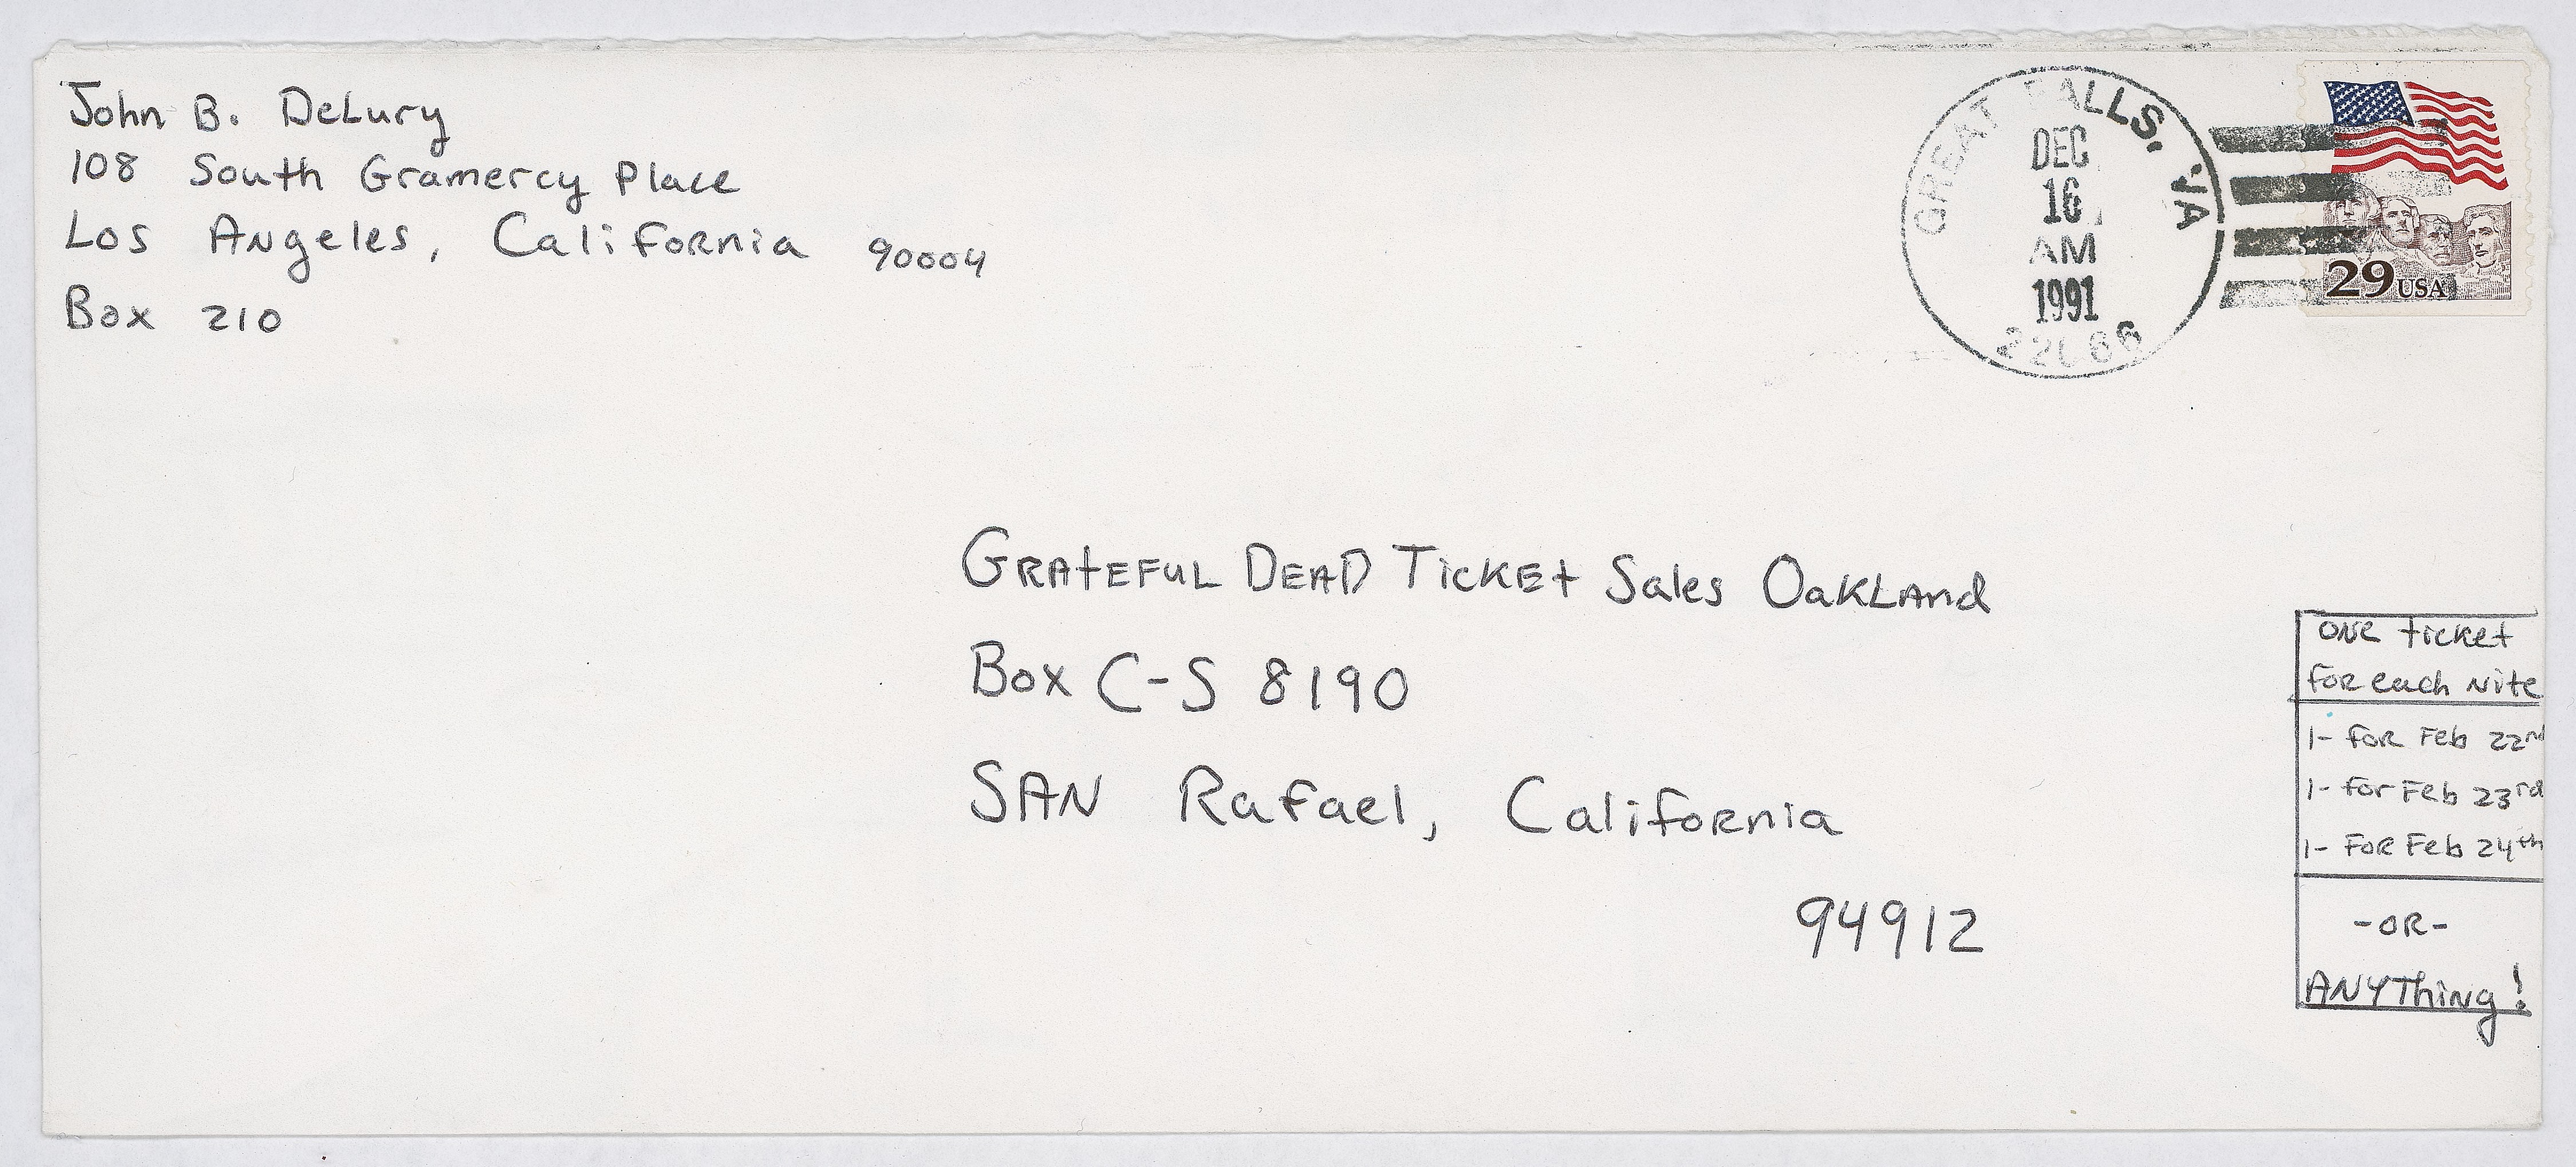 John B. DeLury
108 South Gramercy Place
Los Angeles, California 90004
Box 210
GREAT FALLS, VA
DEC
16
AM
1991
29 USA
GRATEFUL DEAD TICKET Sales OAKLAND
Box C-S 8190
SAN Rafael, California
94912
ONE ticket
FOR each Nite
1- FOR Feb 22nd
1- For Feb 23rd
1- FOR Feb 24th
-OR-
ANYThiNg!